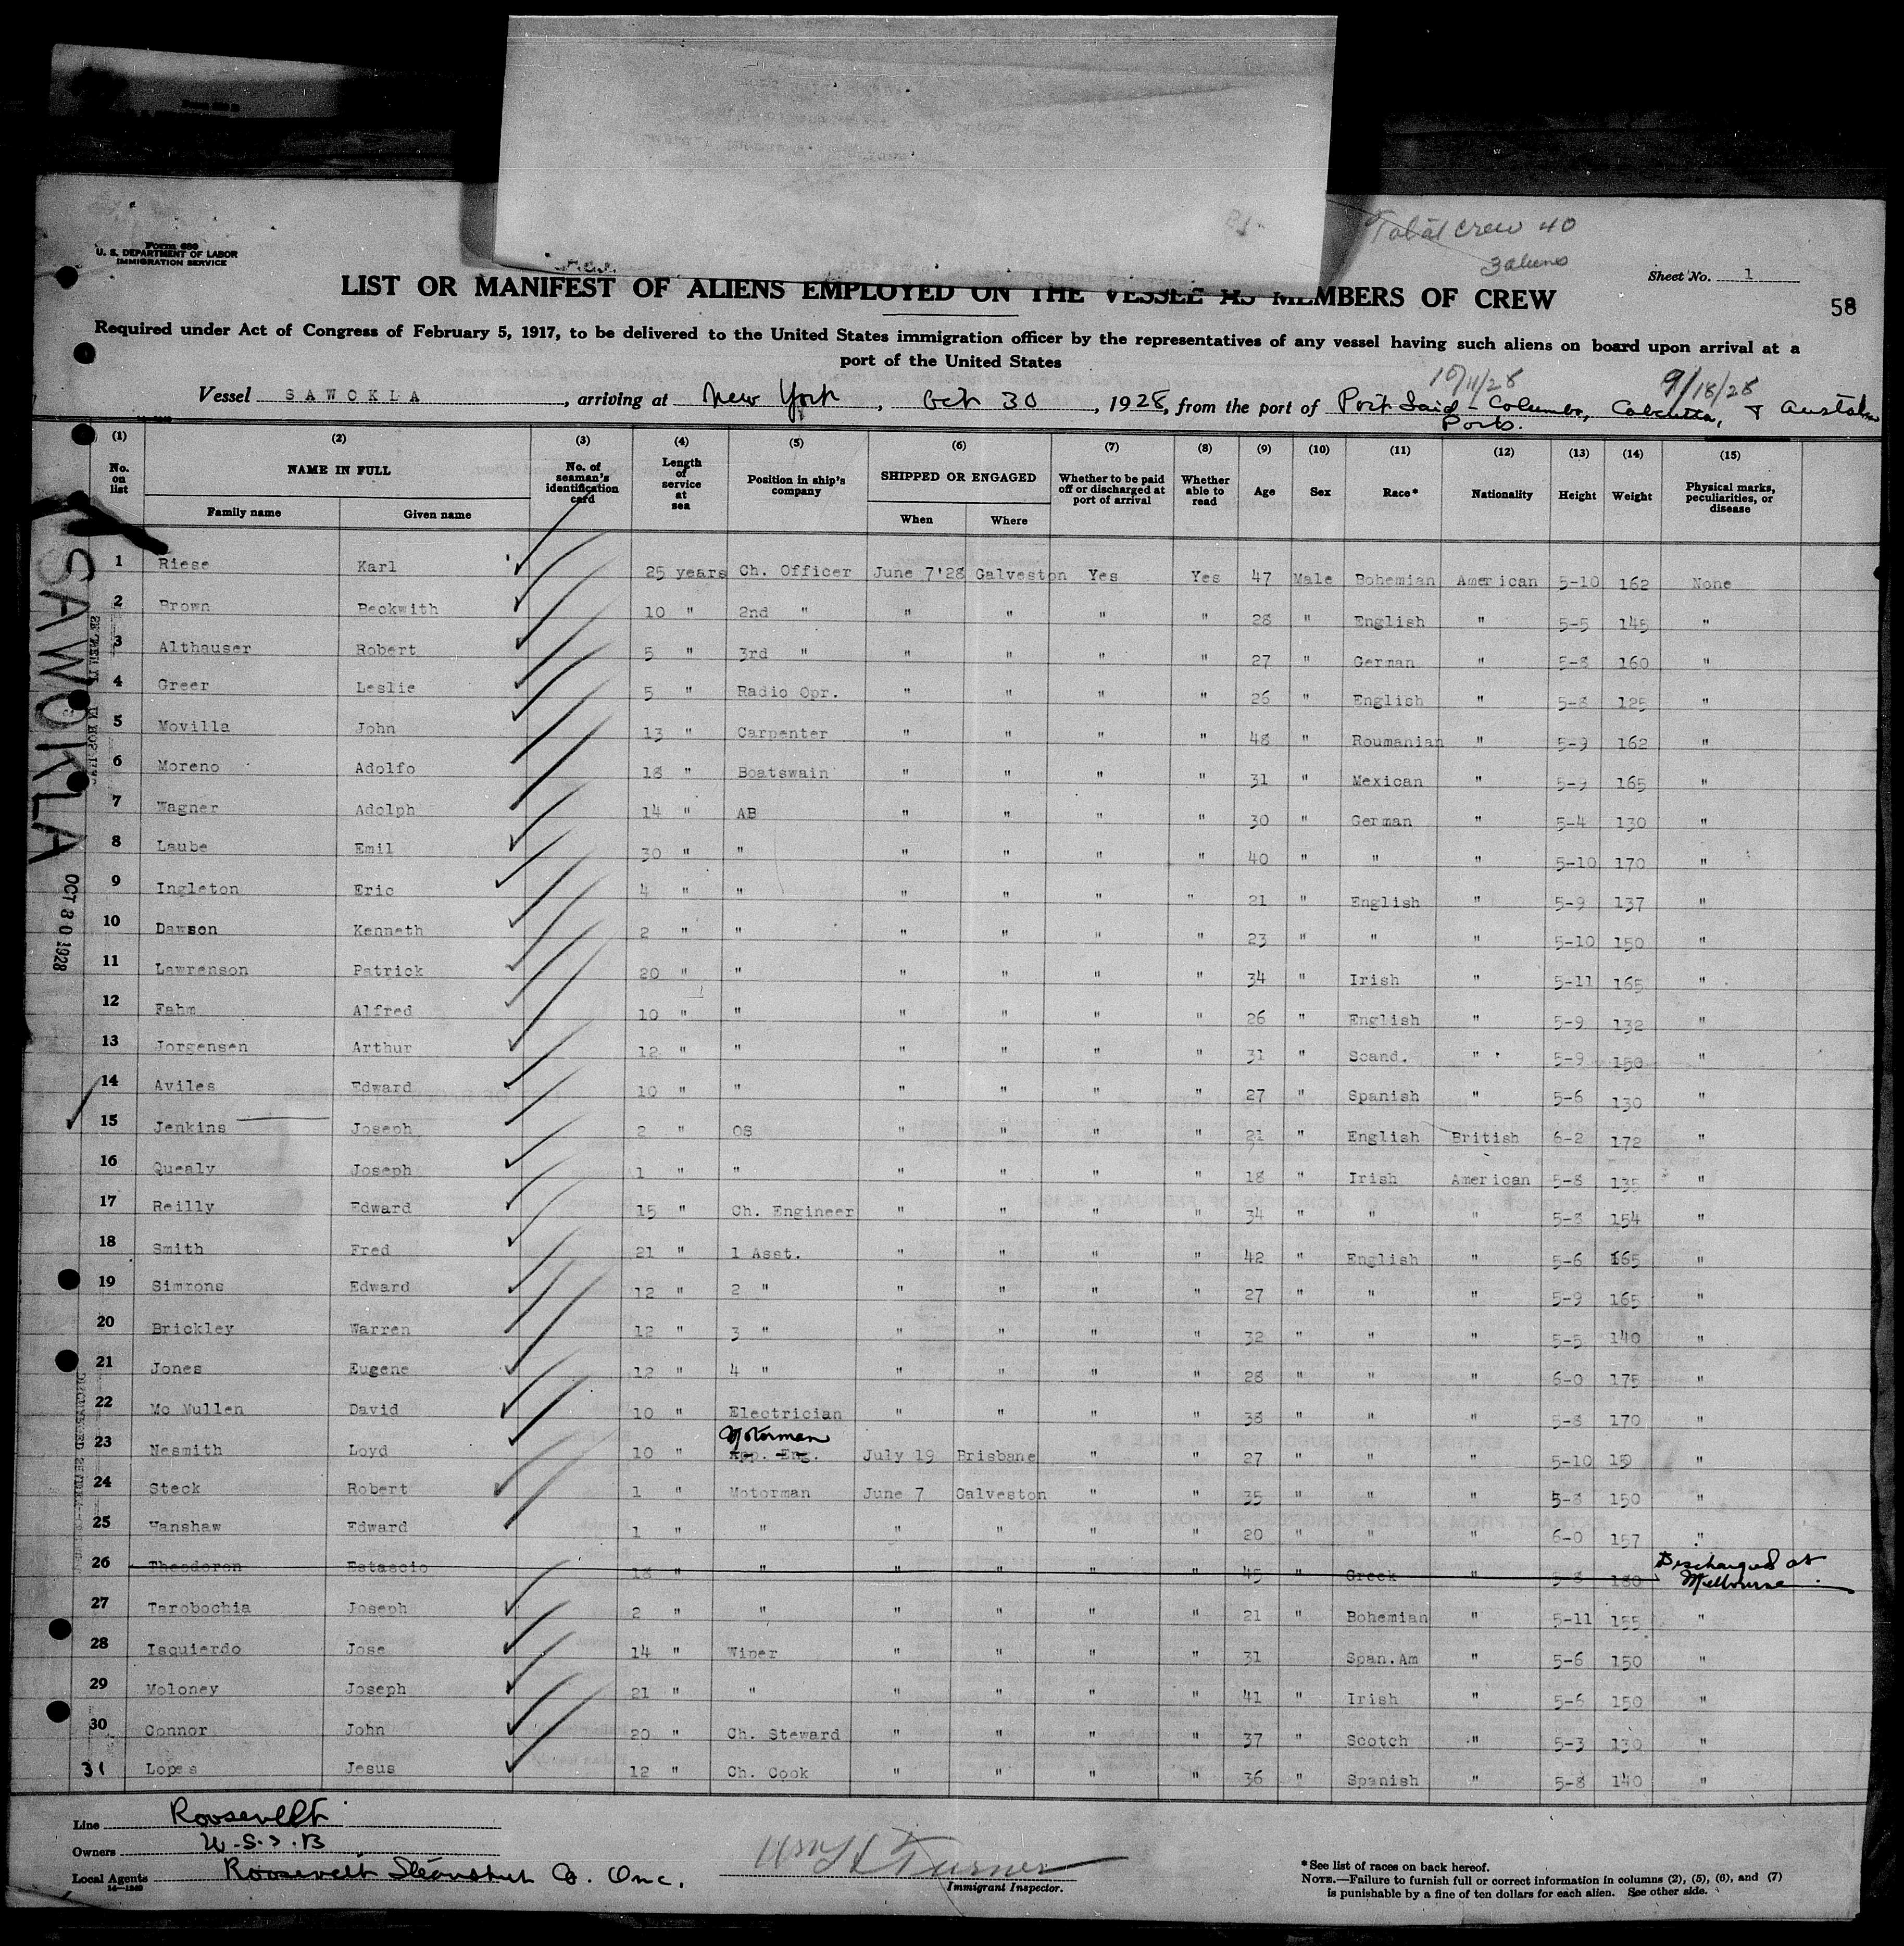 Total Crew 40
3 aliens
Form 680
U. S. DEPARTMENT OF LABOR
IMMIGRATION SERVICE
Sheet No. 1
58
LIST OR MANIFEST OF ALIENS EMPLOYED ON THE VESSEL AS MEMBERS OF CREW
Required under Act of Congress of February 5, 1917, to be delivered to the United States immigration officer by the representatives of any vessel having such aliens on board upon arrival at a
port of the United States
10/11/28 9/18/28
Vessel SAWOKLA, arriving at New York, Oct 30, 1928, from the port of Port Said - Columbo, Calcutta, &
Ports.
(1) (2) (3) (4) (5) (6) (7) (8) (9) (10) (11) (12) (13) (14) (15)
No. on list NAME IN FULL No. of seaman's identification card Length of service at sea Position in ship's company SHIPPED OR ENGAGED Whether to be paid off or discharged at port of arrival Whether able to read Age Sex Race* Nationality Height Weight Physical marks, peculiarities, or disease
Family name Given name When Where
1 Riese Karl 25 years Ch. Officer June 7'28 Galveston Yes Yes 47 Male Bohemian American 5-10 162 None
2 Brown Beckwith 10 " 2nd " " " " " 28 " English " 5-5 145 "
3 Althauser Robert 5 " 3rd " " " " " 27 " German " 5-8 160 "
4 Greer Leslie 5 " Radio Opr. " " " " 26 " English " 5-8 125 "
5 Movilla John 13 " Carpenter " " " " 48 " Roumanian " 5-9 162 "
6 Moreno Adolfo 18 " Boatswain " " " " 31 " Mexican " 5-9 165 "
7 Wagner Adolph 14 " AB " " " " 30 " German " 5-4 130 "
8 Laube Emil 30 " " " " " " 40 " " " 5-10 170 "
9 Ingleton Eric 4 " " " " " " 21 " English " 5-9 137 "
10 Dawson Kenneth 2 " " " " " " 23 " " " 5-10 150 "
11 Lawrenson Patrick 20 " " " " " " 34 " Irish " 5-11 165 "
12 Fahm Alfred 10 " " " " " " 26 " English " 5-9 132 "
13 Jorgensen Arthur 12 " " " " " " 31 " Scand. " 5-9 150 "
14 Aviles Edward 10 " " " " " " 27 " Spanish " 5-6 130 "
15 Jenkins Joseph 2 " OS " " " " 21 " English British 6-2 172 "
16 Quealy Joseph 1 " " " " " " 18 " Irish American 5-8 135 "
17 Reilly Edward 15 " Ch. Engineer " " " " 34 " " " 5-8 154 "
18 Smith Fred 21 " 1 Asst. " " " " 42 " English " 5-6 165 "
19 Simrons Edward 12 " 2 " " " " " 27 " " " 5-9 165 "
20 Brickley Warren 12 " 3 " " " " " 32 " " " 5-5 140 "
21 Jones Eugene 12 " 4 " " " " " 28 " " " 6-0 175 "
22 Mc Mullen David 10 " Electrician " " " " 38 " " " 5-8 170 "
Motorman
23 Nesmith Loyd 10 " App. Eng. July 19 Brisbane " " 27 " " " 5-10 "
24 Steck Robert 1 " Motorman June 7 Galveston " " 35 " " " 5-8 150 "
25 Hanshaw Edward 1 " " " " " " 20 " " " 6-0 157 "
26 Theodoron Estascio 18 " " " " " " 45 " Greek " 5-8 180 Discharged at Melbourne
27 Tarobochia Joseph 2 " " " " " " 21 " Bohemian " 5-11 155 "
28 Isquierdo Jose 14 " Wiper " " " " 31 Span.Am " 5-6 150 "
29 Moloney Joseph 21 " " " " " " 41 " Irish " 5-6 150 "
30 Connor John 20 " Ch. Steward " " " " 37 " Scotch " 5-3 130 "
31 Lopes Jesus 12 " Ch. Cook " " " " 36 " Spanish " 5-8 140 "
SAWOKLA
OCT 30 1928
Line Roosevelt
Owners U.S.S.B
Local Agents Roosevelt Steamship Co. Inc.
14—1240
Wm H Turner
Immigrant Inspector.
*See list of races on back hereof.
NOTE.—Failure to furnish full or correct information in columns (2), (5), (6), and (7)
is punishable by a fine of ten dollars for each alien. See other side.